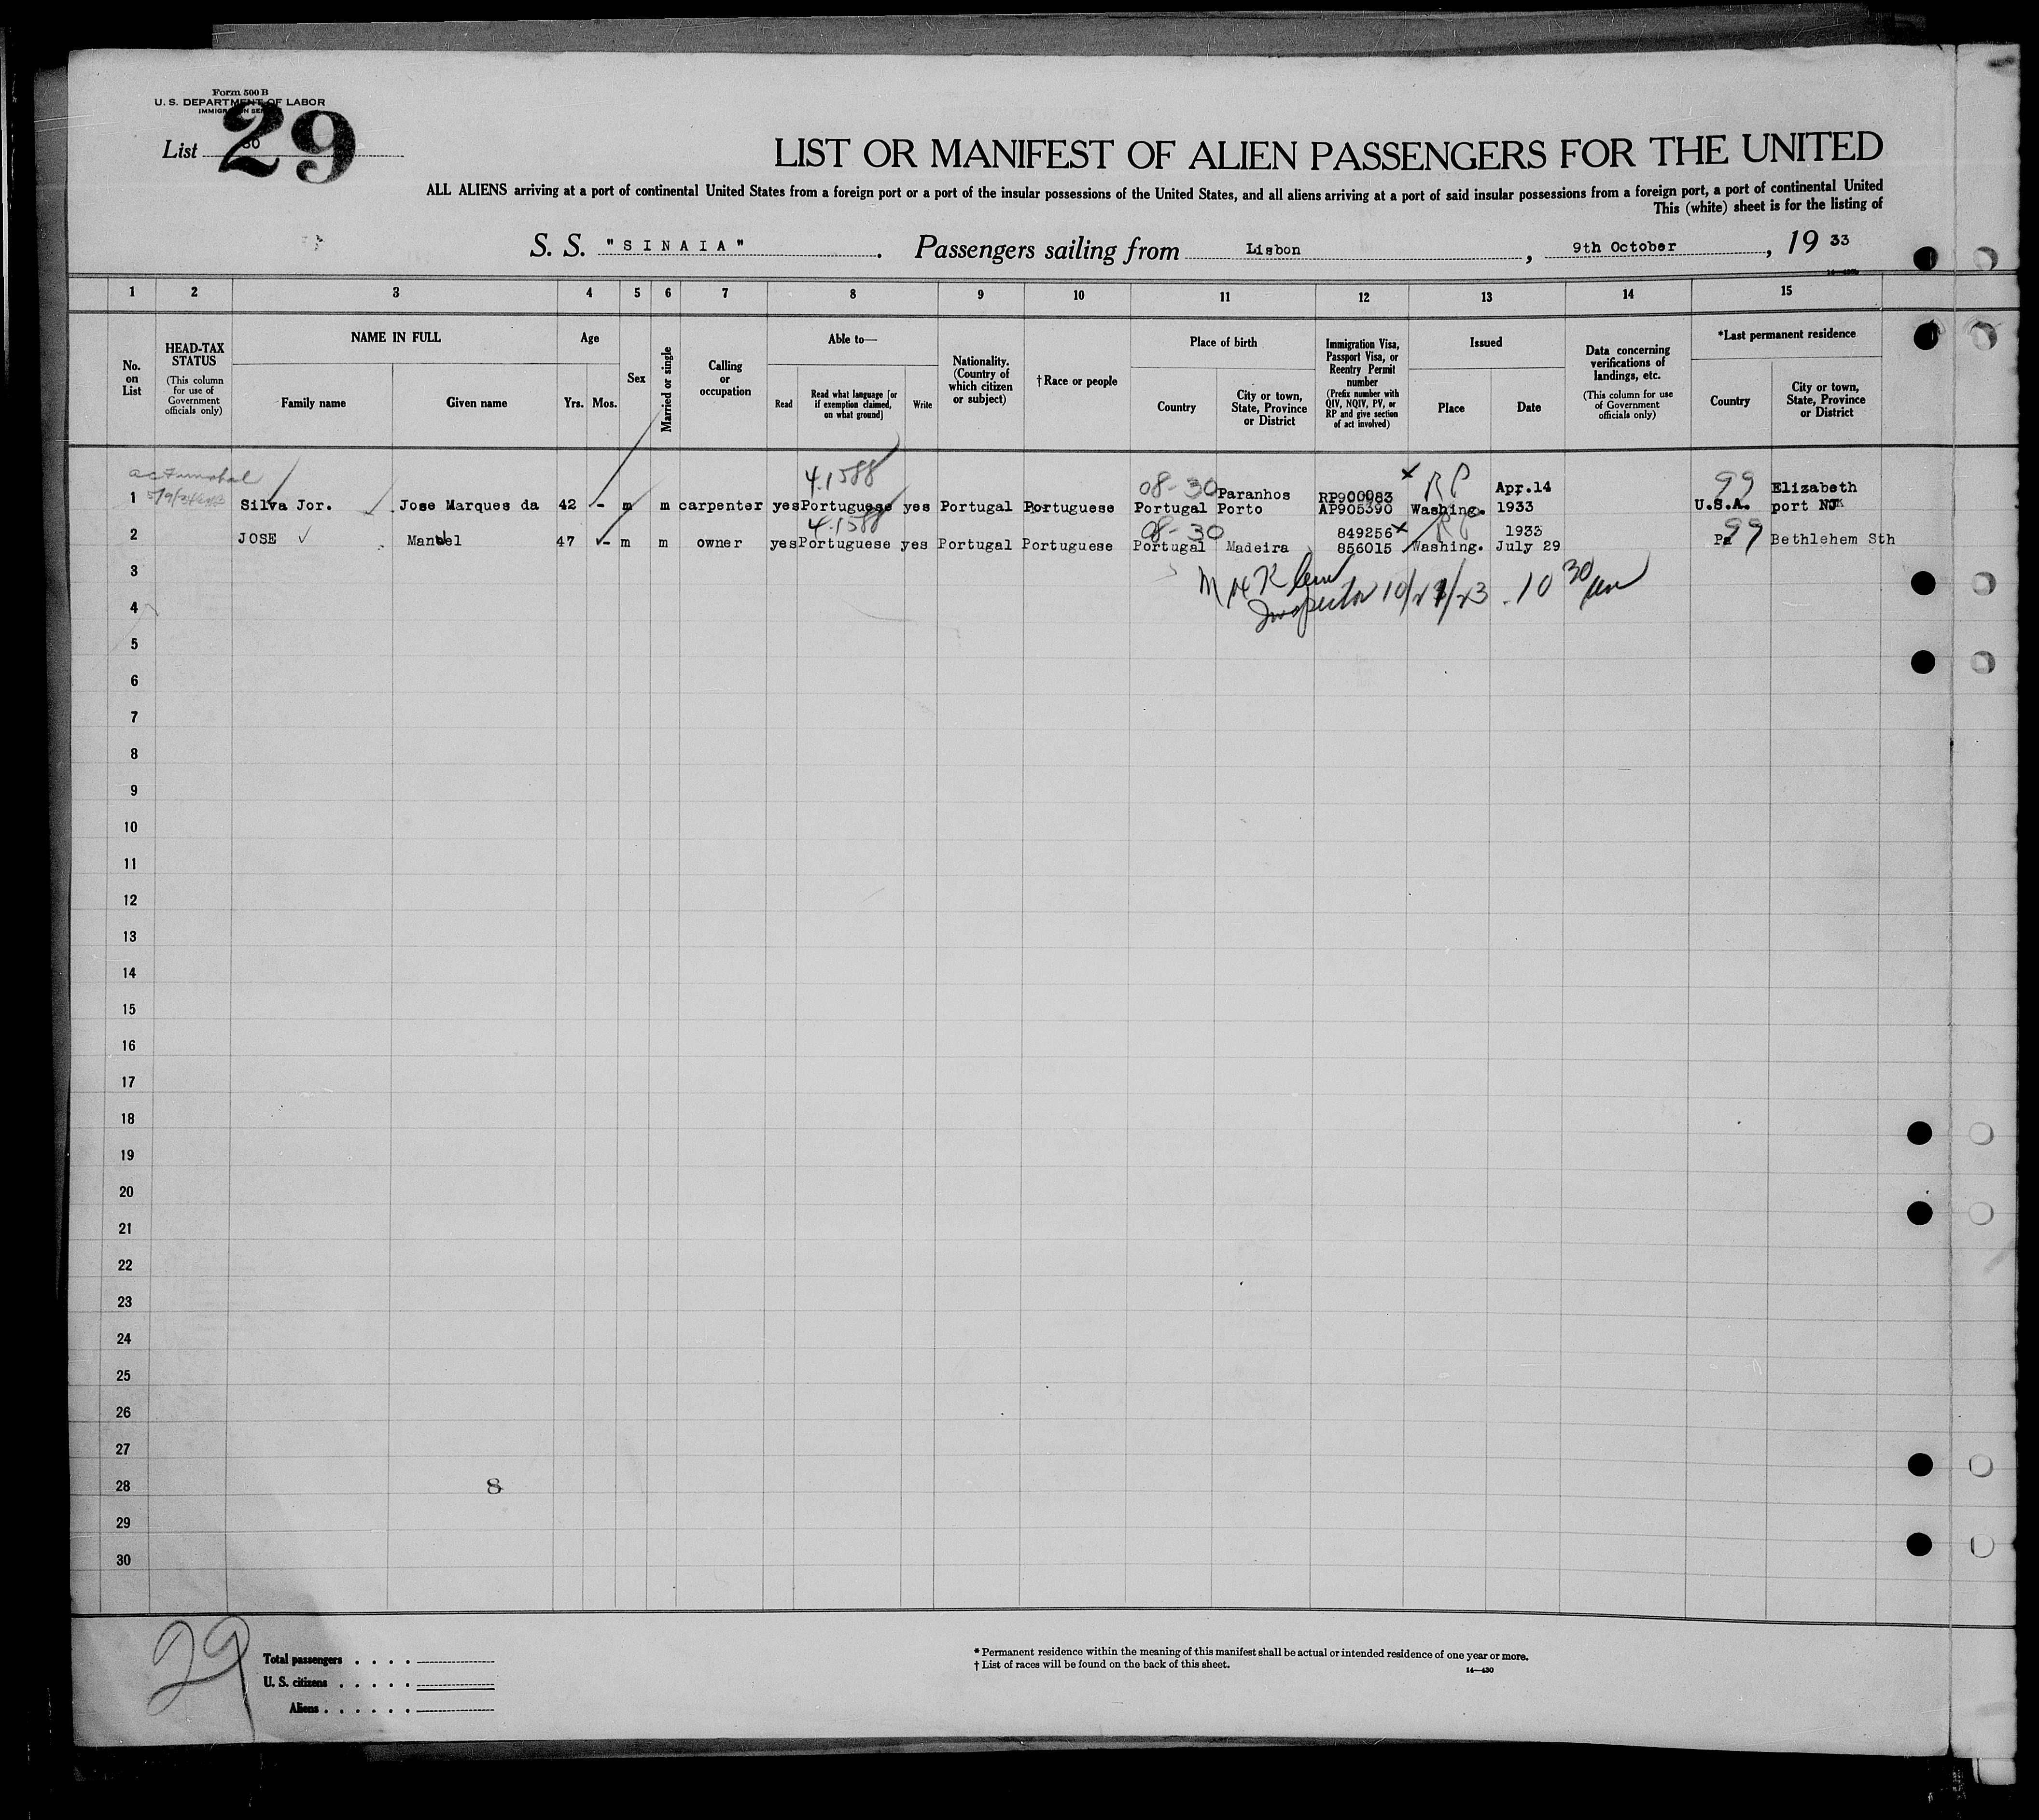 Form 500 B
U. S. DEPARTMENT OF LABOR
List 29
LIST OR MANIFEST OF ALIEN PASSENGERS FOR THE UNITED
ALL ALIENS arriving at a port of continental United States from a foreign port or a port of the insular possessions of the United States, and all aliens arriving at a port of said insular possessions from a foreign port, a port of continental United
This (white) sheet is for the listing of
S. S. "SINAIA". Passengers sailing from Lisbon, 9th October, 19 33
1 2 3 4 5 6 7 8 9 10 11 12 13 14 15
No. on List
HEAD-TAX STATUS (This column for use of Government officials only)
NAME IN FULL
Family name
Given name
Age
Yrs. Mos.
Sex
Married or single
Calling or occupation
Able to—
Read
Read what language [or if exemption claimed, on what ground]
Write
Nationality. (Country of which citizen or subject)
†Race or people
Place of birth
Country
City or town, State, Province or District
Immigration Visa, Passport Visa, or Reentry Permit number (Prefix number with QIV, NQIV, PV, or RP and give section of act involved)
Issued
Place
Date
Data concerning verifications of landings, etc. (This column for use of Government officials only)
*Last permanent residence
Country
City or town, State, Province or District
4.1588 08-30 Paranhos RP900083 RP Apr.14 99 Elizabeth
1 Silva Jor. Jose Marques da 42 - m m carpenter yes Portuguese yes Portugal Portuguese Portugal Porto AP905390 Washing. 1933 U.S.A. port NJ
4.1588 08-30 849256 RP 1933 99
2 JOSE Manoel 47 - m m owner yes Portuguese yes Portugal Portuguese Portugal Madeira 856015 Washing. July 29 Pa Bethlehem Sth
3
4 Inspector
5
6
7
8
9
10
11
12
13
14
15
16
17
18
19
20
21
22
23
24
25
26
27
28 8
29
30
29
Total passengers . . . .
U. S. citizens . . . . .
Aliens . . . . . .
* Permanent residence within the meaning of this manifest shall be actual or intended residence of one year or more.
† List of races will be found on the back of this sheet.
14—430